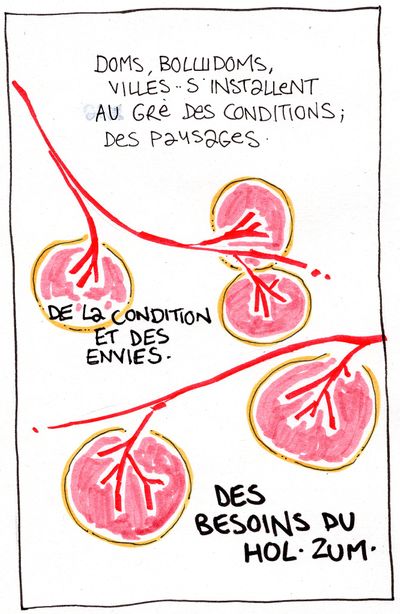 DOMS, BOLLUDOMS,
VILLES.. S'INSTALLENT
AU GRÈ DES CONDITIONS;
DES PAYSAGES.
DE LA CONDITION
ET DES
ENVIES.
DES
BESOINS DU
HOL. ZUM.